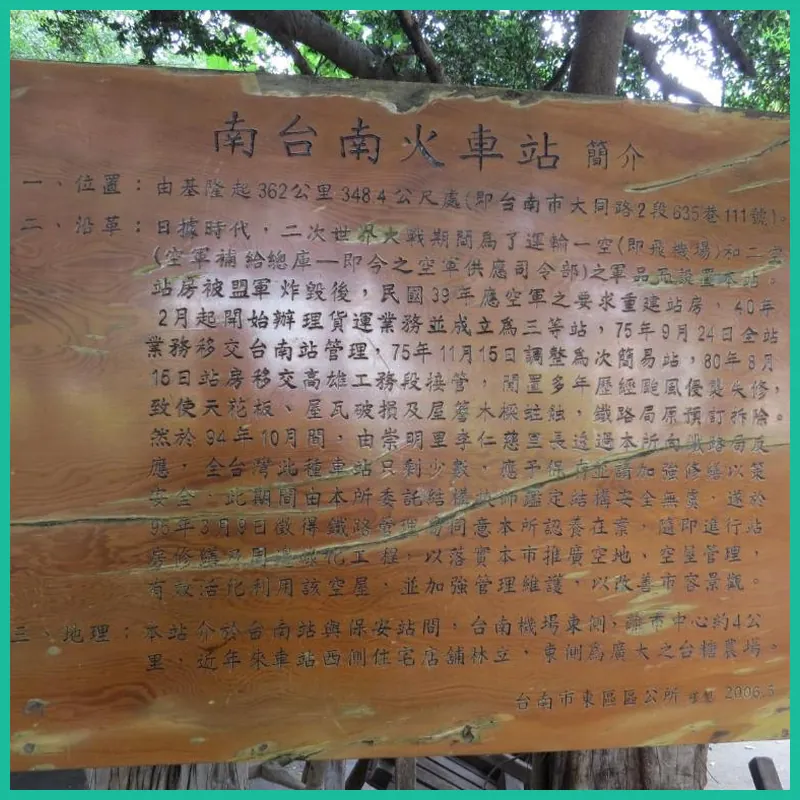 南台南火車站 簡介
一、位置：由基隆起362公里348.4公尺處(即台南市大同路2段635巷111號)。
二、沿革：日據時代，二次世界大戰期間為了運輸一空(即飛機場)和二空
(空軍補給總庫—即今之空軍供應司令部)之軍品而設置本站。
站房被盟軍炸毀後，民國39年應空軍之要求重建站房，40年
2月起開始辦理貨運業務並成立為三等站，75年9月24日全站
業務移交台南站管理，75年11月15日調整為次簡易站，80年8月
15日站房移交高雄工務段接管，閒置多年歷經颱風侵襲失修，
致使天花板、屋瓦破損及屋簷木樑蛀蝕，鐵路局原預訂拆除。
然於94年10月間，由崇明里李仁慈里長透過本所向鐵路局反
應，全台灣此種車站只剩少數，應予保存並請加強修繕以策
安全，此期間由本所委託結構技師鑑定結構安全無虞，遂於
95年3月9日徵得鐵路管理局同意本所認養在案，隨即進行站
房修繕及周邊綠化工程，以落實本市推廣空地、空屋管理，
有效活化利用該空屋，並加強管理維護，以改善市容景觀。
三、地理：本站介於台南站與保安站間，台南機場東側，離市中心約4公
里，近年來車站西側住宅店舖林立，東側為廣大之台糖農場。
台南市東區區公所 2006.5